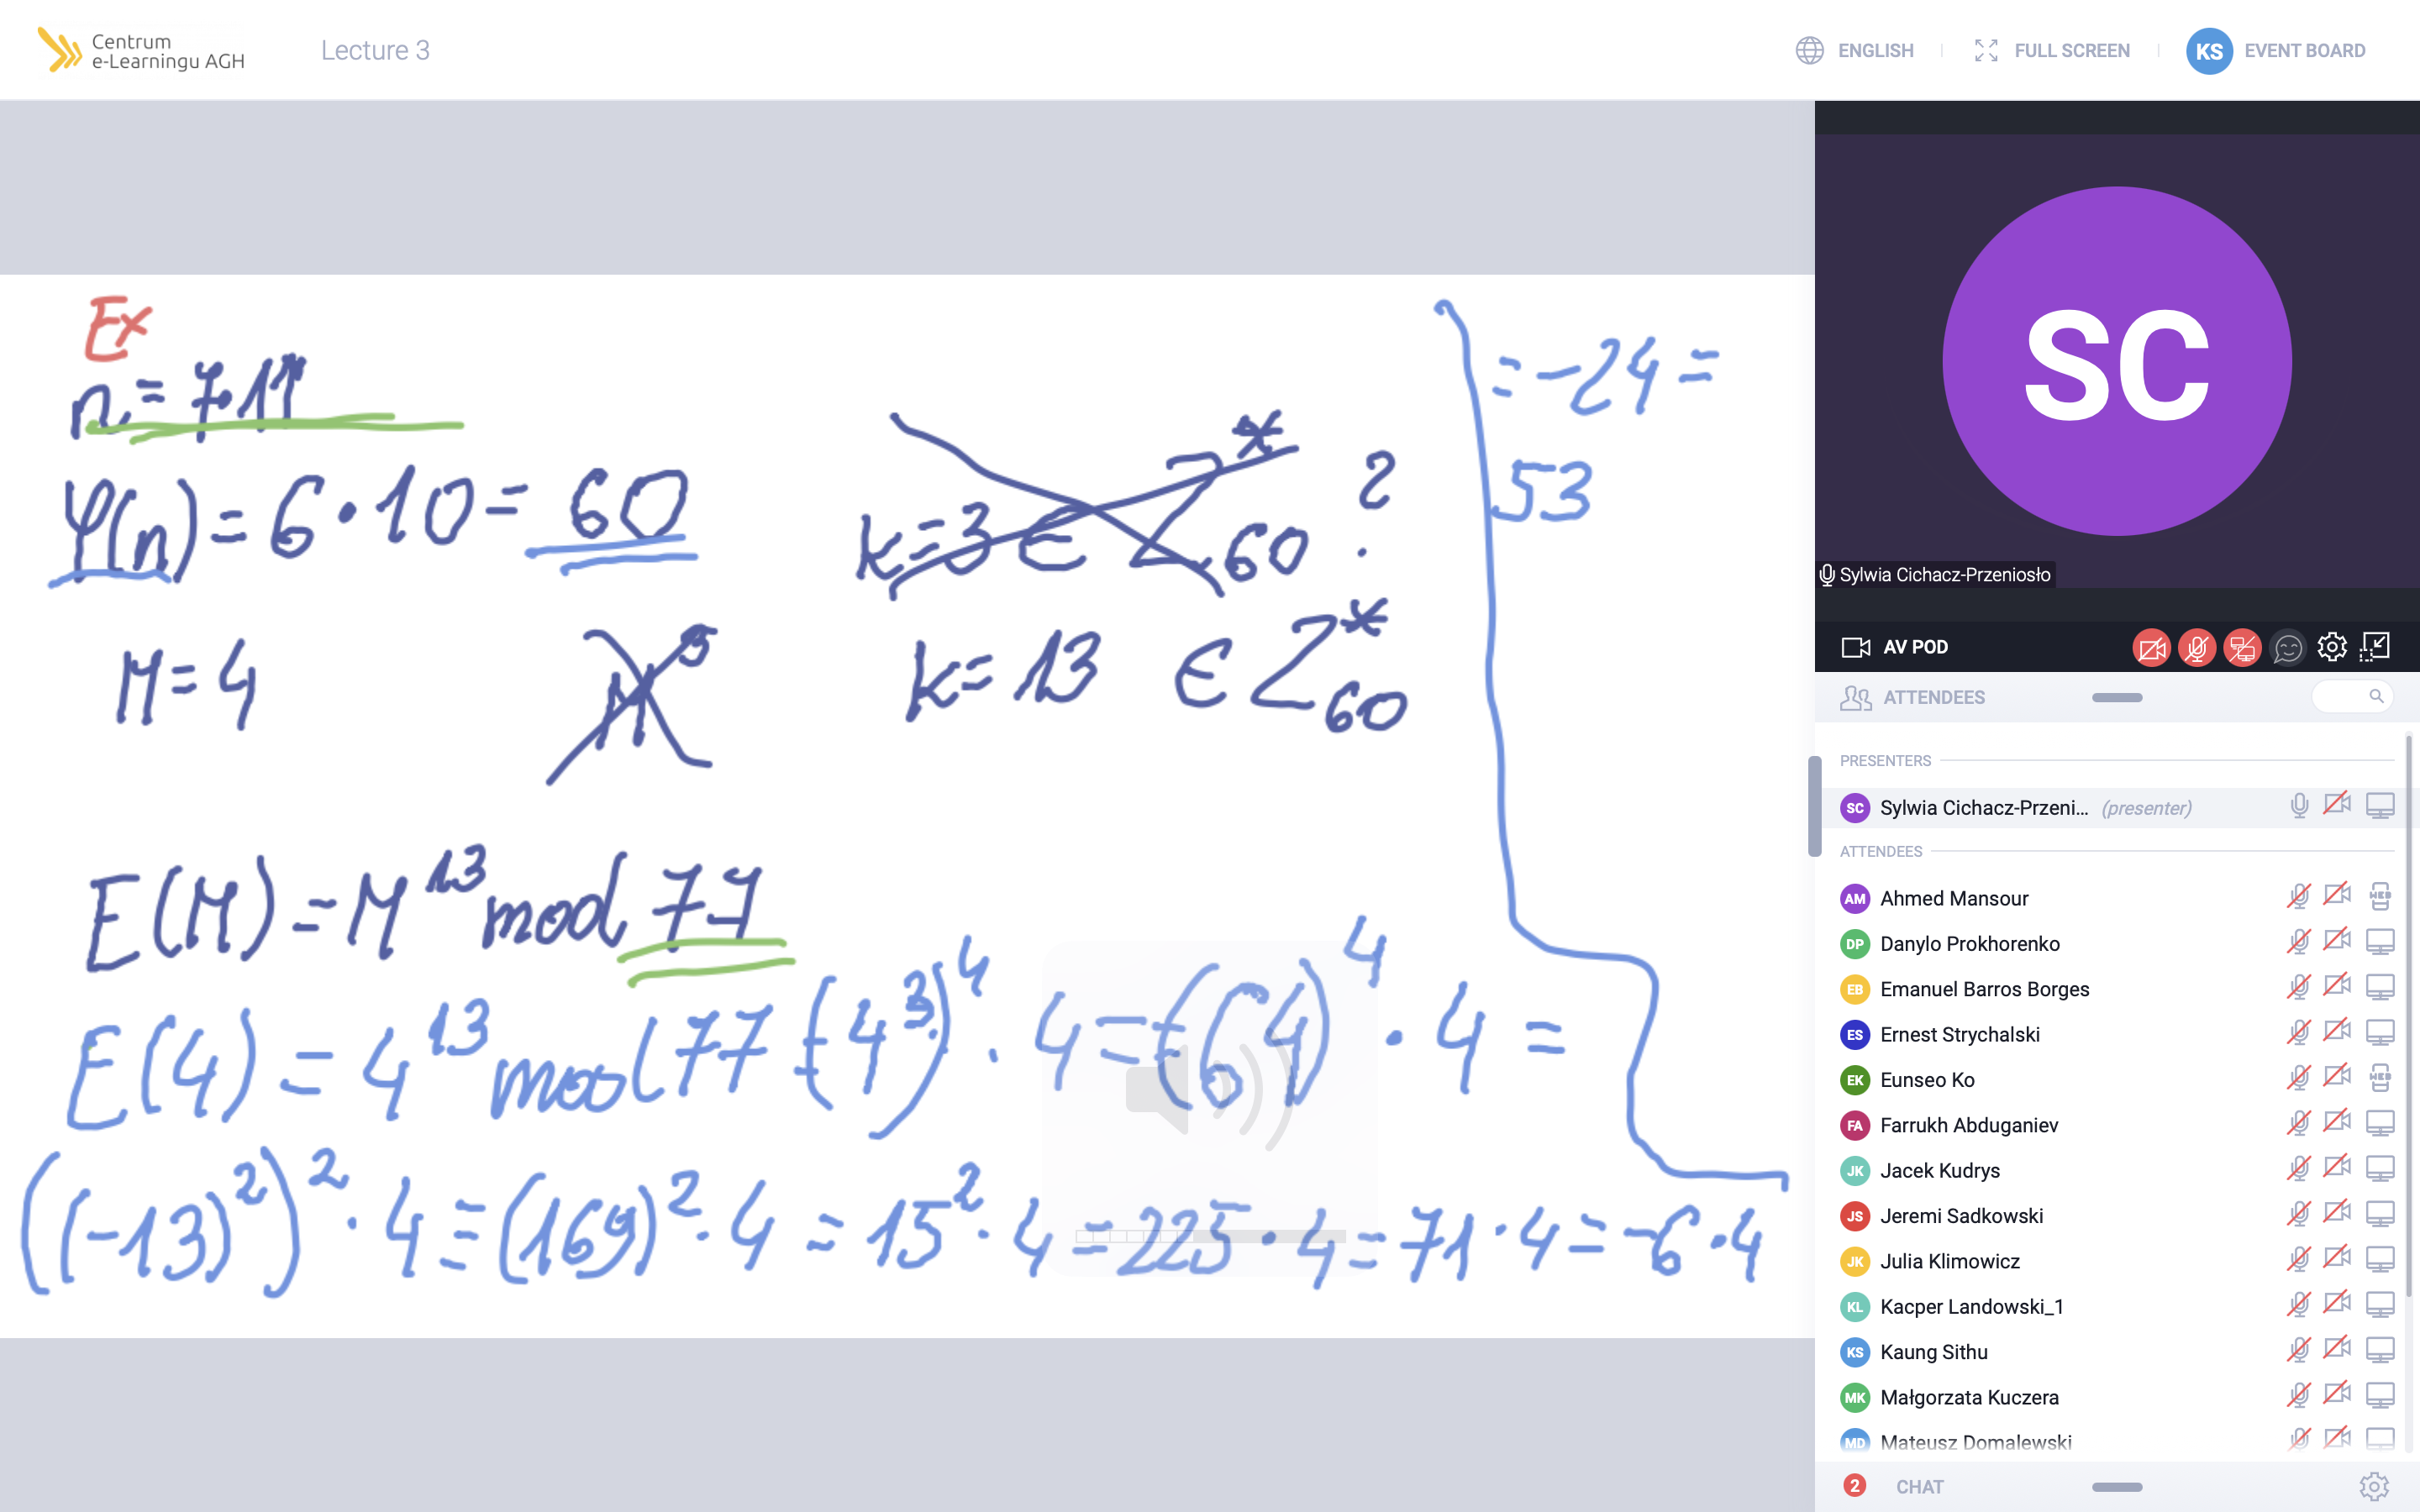 Centrum
e-Learningu AGH
Lecture 3
ENGLISH
FULL SCREEN
KS
EVENT BOARD
Ex
n = 7·11
φ(n) = 6·10 = 60
k=3 ∈ Z*60 ?
M=4
k=13 ∈ Z*60
E(M) = M^13 mod 77
E(4) = 4^13 mod 77 = (4^3)^4 · 4 = (64)^4 · 4 =
((-13)^2)^2 · 4 = (169)^2 · 4 = 15^2 · 4 = 225 · 4 = 71 · 4 = -6 · 4
= -24 =
53
SC
Sylwia Cichacz-Przeniosło
AV POD
ATTENDEES
PRESENTERS
SC Sylwia Cichacz-Przeni... (presenter)
ATTENDEES
AM Ahmed Mansour WEB
DP Danylo Prokhorenko
EB Emanuel Barros Borges
ES Ernest Strychalski
EK Eunseo Ko WEB
FA Farrukh Abduganiev
JK Jacek Kudrys
JS Jeremi Sadkowski
JK Julia Klimowicz
KL Kacper Landowski_1
KS Kaung Sithu
MK Małgorzata Kuczera
MD Mateusz Domalewski
2 CHAT